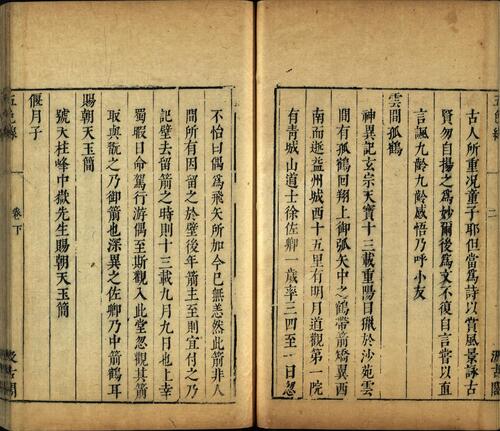 古人所重况童子耶但當爲詩以賞風景詠古
賢勿自揚之爲妙爾後爲文不復自言常以直
言諷九齡九齡感悟乃呼小友
雲間孤鶴
神異記玄宗天寶十三載重陽日獵於沙苑雲
間有孤鶴回翔上御弧矢中之鶴帶箭矯翼西
南而逝益州城西十五里有明月道觀第一院
有青城山道士徐佐卿一歲率三四至一日忽
不怡曰偶爲飛矢所加今已無恙然此箭非人
間所有因留之於壁後年箭主至則宜付之乃
記壁去留箭之時則十三載九月九日也上幸
蜀暇日命駕行游偶至斯觀入此堂忽觀其箭
取與翫之乃御箭也深異之佐卿乃中箭鶴耳
賜朝天玉簡
號天柱峰中嶽先生賜朝天玉簡
偃月子
卷下